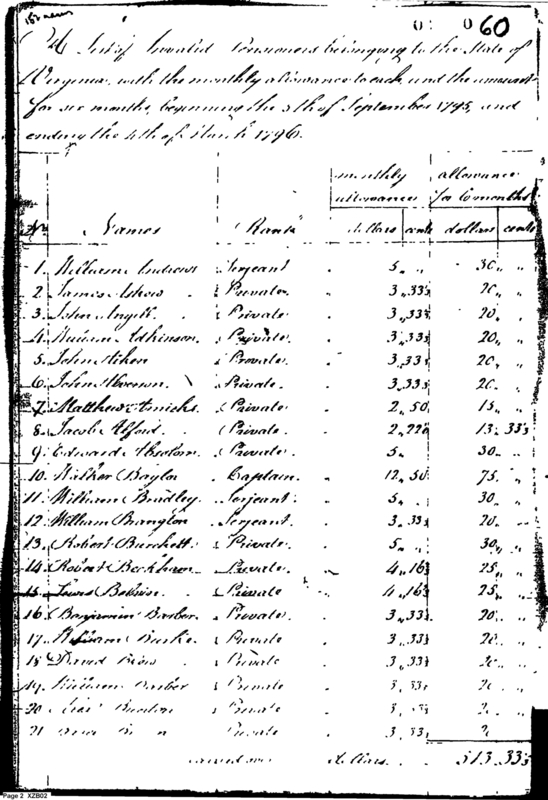 60
List of Invalid Pensioners belonging to the State of
Virginia, with the monthly allowance to each, and the amount
for six months, beginning the 5th of September 1795, and
ending the 4th of March 1796.
monthly allowance
allowances for 6 months
No. Names Rank dollars cents dollars cents
1. William Andrews Serjeant 5 „ „ 30 „ „
2 James Askew Private 3 „ 33⅓ 20 „ „
3. John Angell Private 3 „ 33⅓ 20 „ „
4. Adkinson. Private 3 „ 33⅓ 20 „ „
5. John Aiken Private 3 „ 33⅓ 20 „ „
6. John Private 3 „ 33⅓ 20 „ „
7 Matthew Amicks. Private 2 „ 50 15 „ „
8. Jacob Alford Private 2 „ 13 „ 33⅓
9 Edward Absolom Private 5 „ „ 30 „ „
10. Walker Baylor Captain 12 „ 50 75 „ „
11. William Bradley Serjeant 5 „ „ 30 „ „
12. William Serjeant 3 „ 33⅓ 20 „ „
13. Robert Burchett Private 5 „ „ 30 „ „
14. Robert Private 4 „ 16⅔ 25 „ „
15. Lewis Private 4 „ 16⅔ 25 „ „
16. Benjamin Barber Private 3 „ 33⅓ 20 „ „
17. William Burke Private 3 „ 33⅓ 20 „ „
18 David Private 3 „ 33⅓ 20 „ „
19. William Barber Private 3 „ 33⅓ 20 „ „
20 Burton Private 3 „ 33⅓ 20 „
21 Private 3 „ 33⅓ 20 „
carried over dollars. 513. 33⅓
Page 2 XZB02